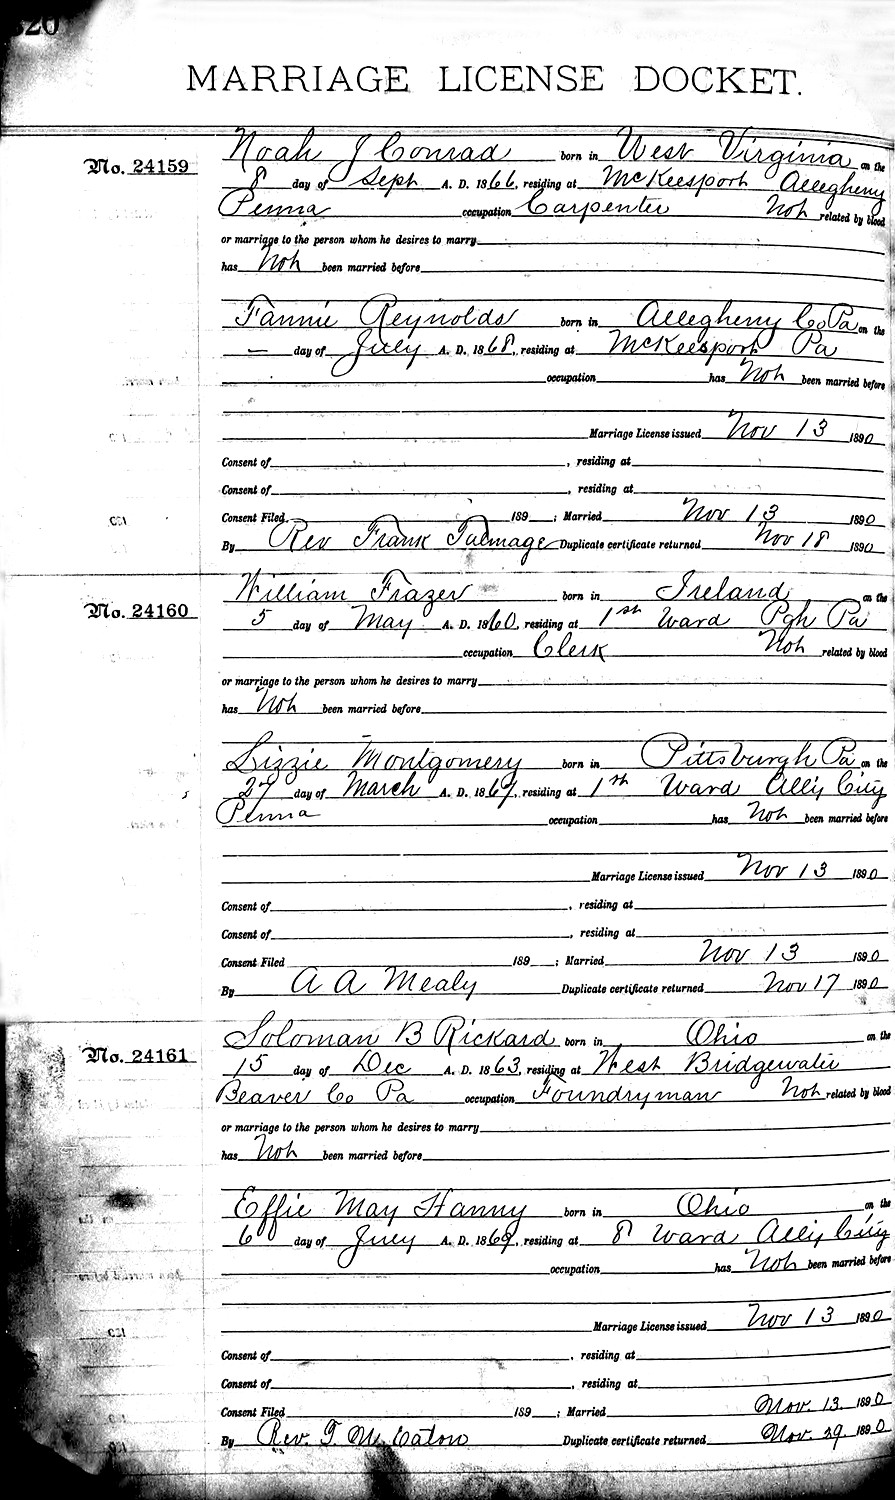 320
MARRIAGE LICENSE DOCKET.
No. 24159
Noah J Conrad born in West Virginia on the
8 day of Sept A. D. 1866, residing at McKeesport Allegheny
Penna occupation Carpenter Not related by blood
or marriage to the person whom he desires to marry
has Not been married before
Fannie Reynolds born in Allegheny Co Pa on the
— day of July A. D. 1868, residing at McKeesport Pa
occupation has Not been married before
Marriage License issued Nov 13 1890
Consent of , residing at
Consent of , residing at
Consent Filed 189 ; Married Nov 13 1890
By Rev Frank Talmage Duplicate certificate returned Nov 18 1890
No. 24160
William Frazer born in Ireland on the
5 day of May A. D. 1860, residing at 1st Ward Pgh Pa
occupation Clerk Not related by blood
or marriage to the person whom he desires to marry
has Not been married before
Lizzie Montgomery born in Pittsburgh Pa on the
27 day of March A. D. 1867, residing at 1st Ward All'y City
Penna occupation has Not been married before
Marriage License issued Nov 13 1890
Consent of , residing at
Consent of , residing at
Consent Filed 189 ; Married Nov 13 1890
By A A Mealy Duplicate certificate returned Nov 17 1890
No. 24161
Soloman B Rickard born in Ohio on the
15 day of Dec A. D. 1863, residing at West Bridgewater
Beaver Co Pa occupation Foundryman Not related by blood
or marriage to the person whom he desires to marry
has Not been married before
Effie May Hanny born in Ohio on the
6 day of July A. D. 1869, residing at 8 Ward All'y City
occupation has Not been married before
Marriage License issued Nov 13 1890
Consent of , residing at
Consent of , residing at
Consent Filed 189 ; Married Nov. 13. 1890
By Rev. T. M. Eaton Duplicate certificate returned Nov. 29 1890